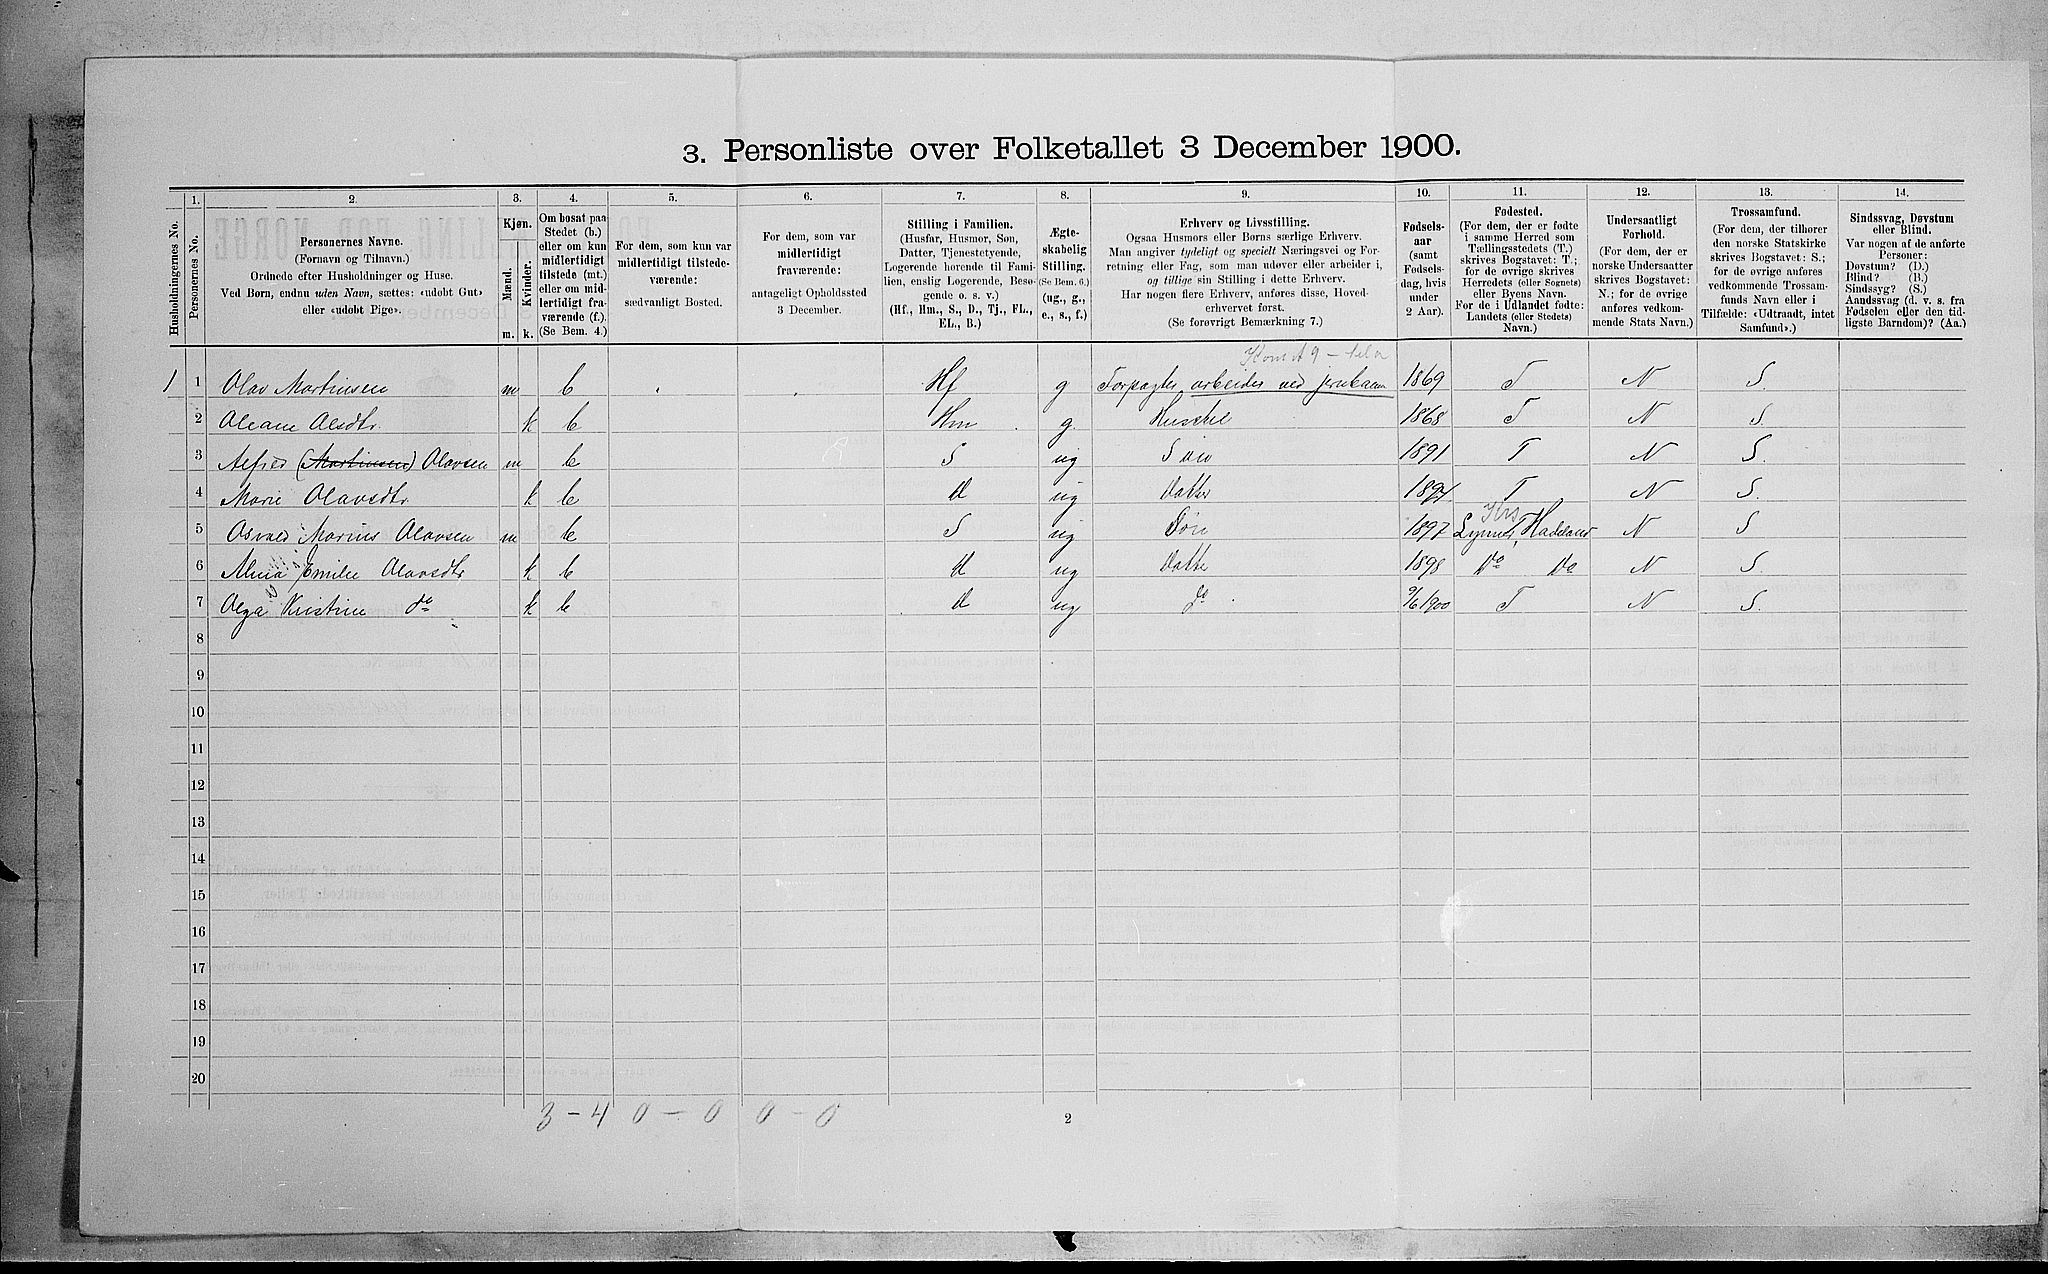 3. Personliste over Folketallet 3 December 1900.
1. 2. 3. 4. 5. 6. 7. 8. 9. 10. 11. 12. 13. 14.
Husholdningernes No.
Personernes No.
Personernes Navne.
(Fornavn og Tilnavn.)
Ordnede efter Husholdninger og Huse.
Ved Børn, endnu uden Navn, sættes: «udobt Gut»
eller «udobt Pige».
Kjøn.
Mænd.
Kvinder.
m. k.
Om bosat paa
Stedet (b.)
eller om kun
midlertidigt
tilstede (mt.)
eller om mid-
lertidigt fra-
værende (f.).
(Se Bem. 4.)
For dem, som kun var
midlertidigt tilstede-
værende:
sædvanligt Bosted.
For dem, som var
midlertidigt
fraværende:
antageligt Opholdssted
3 December.
Stilling i Familien.
(Husfar, Husmor, Søn,
Datter, Tjenestetyende,
Logerende hørende til Fami-
lien, enslig Logerende, Besø-
gende o. s. v.)
(Hf., Hm., S., D., Tj., FL.,
EL., B.)
Ægte-
skabelig
Stilling.
(Se Bem. 6.)
(ug., g.,
e., s., f.)
Erhverv og Livsstilling.
Ogsaa Husmors eller Børns særlige Erhverv.
Man angiver tydeligt og specielt Næringsvei og For-
retning eller Fag, som man udøver eller arbeider i,
og tillige sin Stilling i dette Erhverv.
Har nogen flere Erhverv, anføres disse, Hoved-
erhvervet først.
(Se forøvrigt Bemærkning 7.)
Fødsels-
aar
(samt
Fødsels-
dag, hvis
under
2 Aar).
Fødested.
(For dem, der er fødte
i samme Herred som
Tællingsstedets (T.)
skrives Bogstavet: T.;
for de øvrige skrives
Herredets (eller Sognets)
eller Byens Navn.
For de i Udlandet fødte:
Landets (eller Stedets)
Navn.)
Undersaatligt
Forhold.
(For dem, der er
norske Undersaatter
skrives Bogstavet:
N.; for de øvrige
anføres vedkom-
mende Stats Navn.)
Trossamfund.
(For dem, der tilhører
den norske Statskirke
skrives Bogstavet: S.;
for de øvrige anføres
vedkommende Trossam-
funds Navn eller i
Tilfælde: «Udtraadt, intet
Samfund».)
Sindssvag, Døvstum
eller Blind.
Var nogen af de anførte
Personer:
Døvstum? (D.)
Blind? (B.)
Sindssyg? (S.)
Aandssvag (d. v. s. fra
Fødselen eller den tid-
ligste Barndom)? (Aa.)
1 1 Olav Martinsen m b Hf g Forpagter, arbeider ved jernbaan 1869 T N S.
2 Oleane Olsdtr. k b Hm g. Husstel 1868 T N S.
3 Alfred (Martinsen) Olavsen m b S ug Søn 1891 T N S.
4 Marie Olavsdtr. k b d ug datter T N S.
5 Osvald Marius Olavsen m b S ug Søn 1897 Hadeland N S
6 Emilie Olavsdtr k b d ug datter 1898 do do N S.
7 Olga Kristine do k b d ug do 9/6 1900 T N S.
8
9
10
11
12
13
14
15
16
17
18
19
20
3 – 4 0 – 0 0 – 0
2